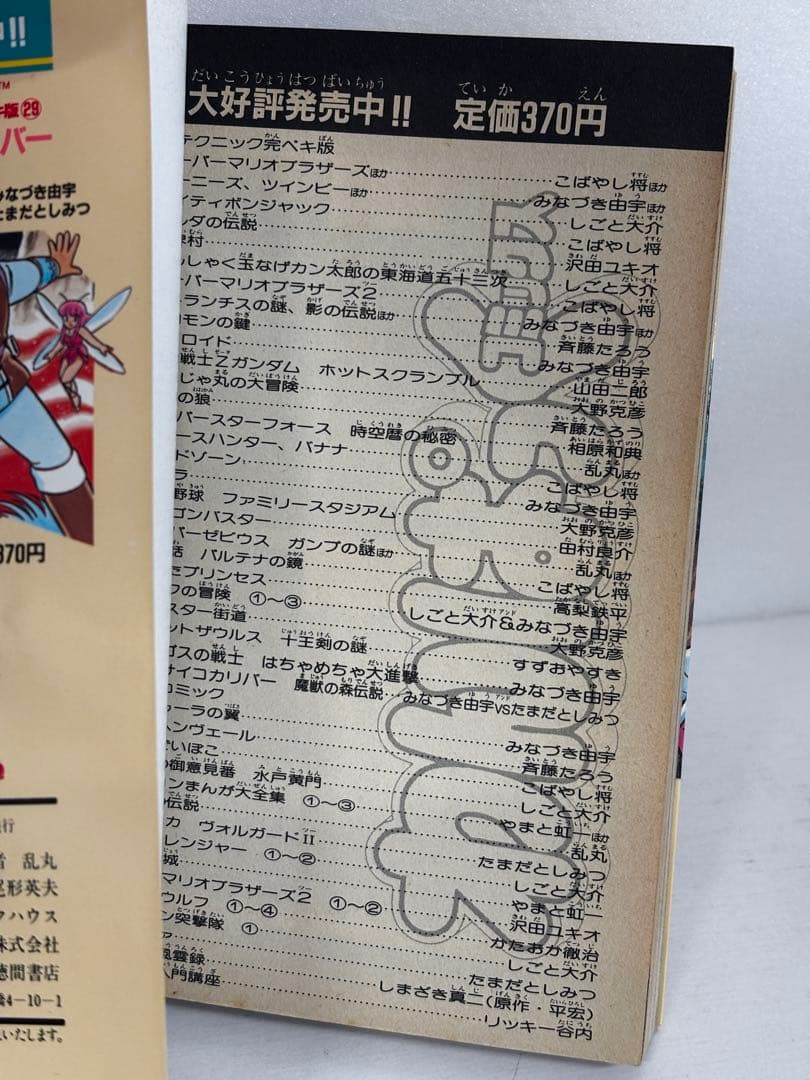 !!
TM
版㉙
バー
みなづき由宇
たまだとしみつ
370円
行
者 乱丸
尾形英夫
クハウス
株式会社
徳間書店
橋4-10-1
いたします。
だいこうひょうはつばいちゅう ていか えん
大好評発売中!! 定価370円
テクニック完ペキ版
ーパーマリオブラザーズほか……こばやし将ほか
ーニーズ、ツインビーほか……みなづき由宇ほか
イティボンジャック……しごと大介
ルダの伝説……こばやし将
村……沢田ユキオ
しゃく玉なげカン太郎の東海道五十三次……しごと大介
ーパーマリオブラザーズ2……こばやし将
トランチスの謎、影の伝説ほか……みなづき由宇ほか
モンの鍵……斉藤たろう
ロイド……みなづき由宇
戦士Zガンダム ホットスクランブル……山田二郎
じゃ丸の大冒険……大野克彦
の狼……斉藤たろう
バースターフォース 時空暦の秘密……相原和典
ースハンター、バナナ……乱丸ほか
ドゾーン……こばやし将
ラ……みなづき由宇
野球 ファミリースタジアム……大野克彦
ゴンバスター……田村良介
パーゼビウス ガンプの謎ほか……乱丸ほか
話 パルテナの鏡……こばやし将
たプリンセス……高梨鉄平
クの冒険 ①〜③……しごと大介&みなづき由宇
スター街道……大野克彦
ットザウルス 十王剣の謎……すずおやすき
ゴスの戦士 はちゃめちゃ大進撃……みなづき由宇
サイコカリバー 魔獣の森伝説…みなづき由宇VSたまだとしみつ
コミック
ァーラの翼……みなづき由宇
ヘンヴェール……斉藤たろう
いぼこ……こばやし将
の御意見番 水戸黄門……しごと大介
ンまんが大全集 ①〜③……やまと虹一ほか
の伝説……乱丸
カ ヴォルガードII……たまだとしみつ
レンジャー ①〜②……しごと大介
城……やまと虹一
マリオブラザーズ2 ①〜②……沢田ユキオ
ウルフ ①〜④……かたおか徹治
ン突撃隊 ①……しごと大介
ァ……たまだとしみつ
風雲録……しまざき真二(原作・平宏)
入門講座……リッキー谷内